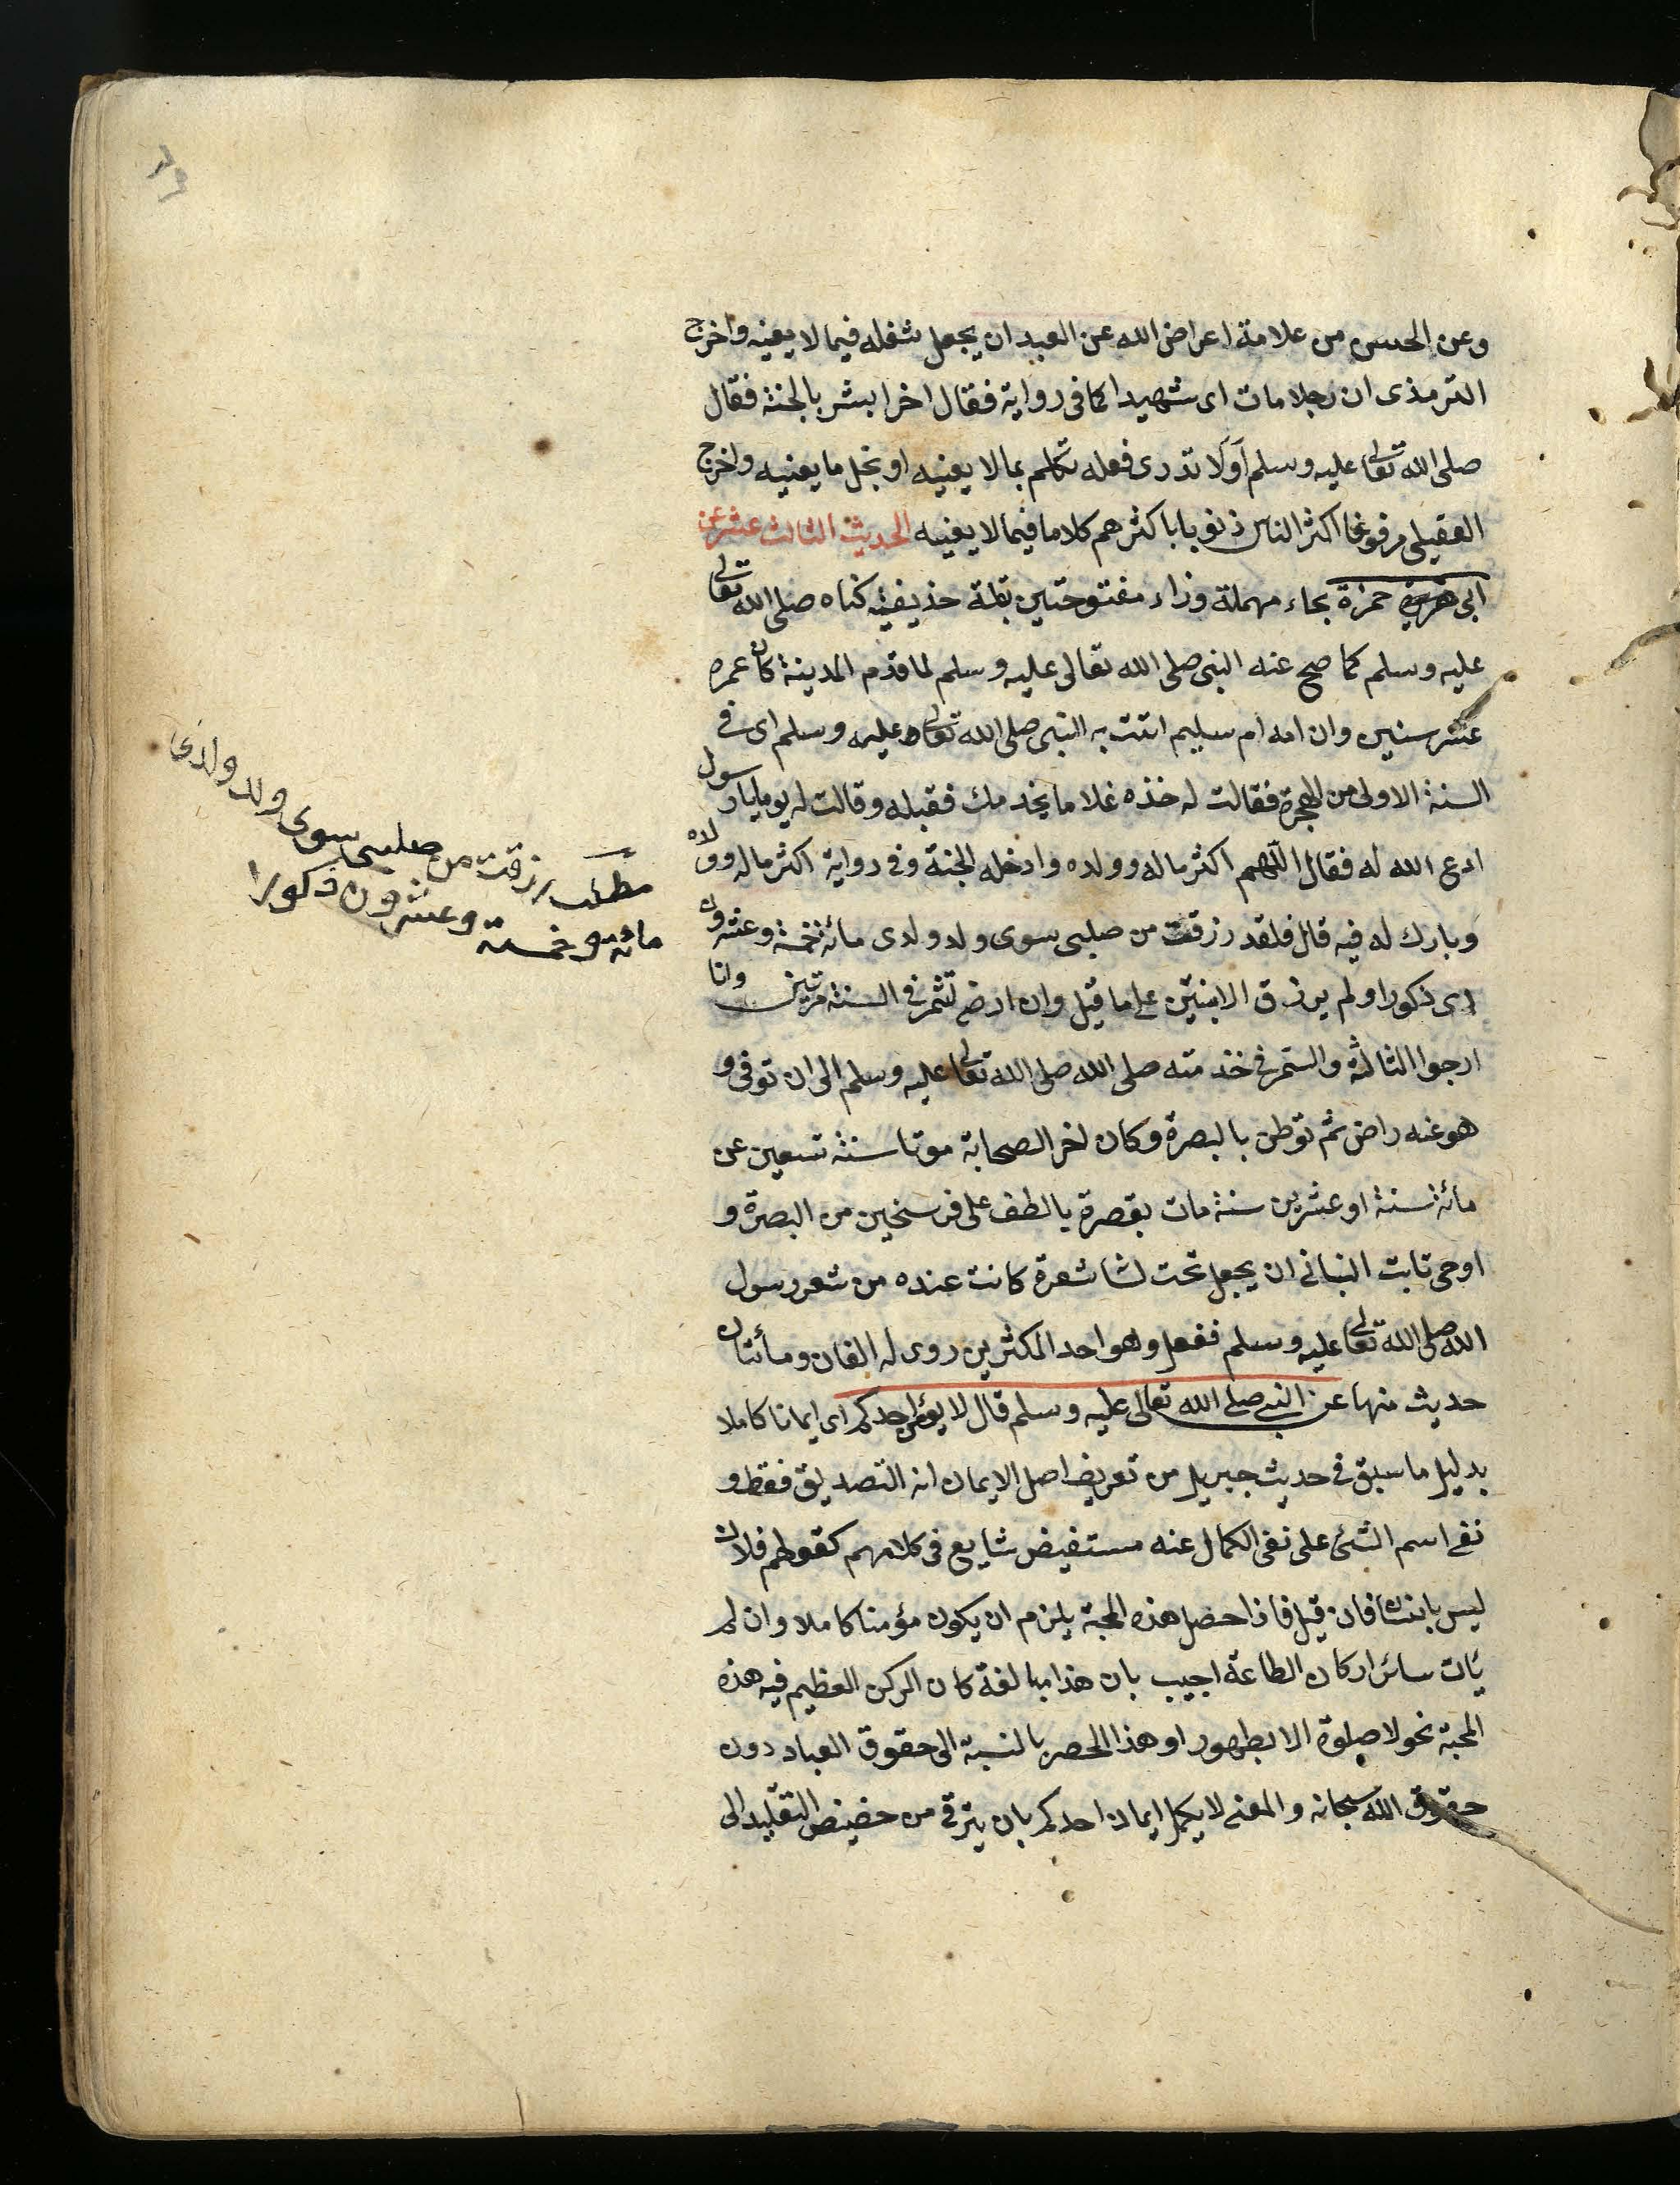 وعن الحسن من علامة اعراض الله عن العبد ان يجعل شغله فيما لا يعنيه واخرج
الترمذى ان رجلا مات اى شهيدا كما فى رواية فقال اخر ابشر بالجنة فقال
صلى الله تعالى عليه وسلم اَوَلَا تدرى فعله تكلم بما لا يعنيه او بخل ما يعنيه واخرج
العقيلى مرفوعا اكثر الناس ذنوبا باكثرهم كلاما فيما لا يعنيه الحديث الثالث عشر عن
ابى حمزة بحاء مهملة وزاء مفتوحتين بقلة حذيفية كناه صلى الله تعالى
عليه وسلم كما صح عنه النبى صلى الله تعالى عليه وسلم لما قدم المدينة كان عمره
عشر سنين وان امه ام سليم اتت به النبى صلى الله تعالى عليه وسلم اى فى
السنة الاولى من الهجرة فقالت له خذه غلاما يخدمك فقبله وقالت له يوما يا رسول
ادع الله له فقال اللهم اكثر ماله وولده وادخله الجنة وفى رواية اكثر ماله وولده
وبارك له فيه قال فلقد رزقت من صلبى سوى ولد ولدى مائة خمسة وعشرون
اى ذكورا ولم يرزق الا بنتين على ما قيل وان ارضى لتثمر فى السنة مرتين وانا
ارجوا الثالثة واستمر فى خدمته صلى الله صلى الله تعالى عليه وسلم الى ان توفى و
هو عنه راض ثم توطن بالبصرة وكان اخر الصحابة موتا سنة تسعين عن
مائة سنة او عشرين سنة مات بقصره بالطف على فرسخين من البصرة و
اوحى ثابت البنانى ان يجعل تحت لشا شعرة كانت عنده من شعر رسول
الله صلى الله تعالى عليه وسلم ففعل وهو احد المكثرين روى له الفان ومأتان
حديث منها عن النبى صلى الله تعالى عليه وسلم قال لا يؤمن احدكم اى ايمانا كاملا
بدليل ما سبق فى حديث جبريل من تعريف اصل الايمان انه التصديق فقط و
نفى اسم الشئ على نفى الكمال عنه مستفيض شايع فى كلامهم كقولهم فلان
ليس بانسان فان قيل فاذا حصل هذه المحبة يلزم ان يكون مؤمنا كاملا وان لم
يأت سائر اركان الطاعة اجيب بان هذا مبالغة كان الركن العظيم فيه هذه
المحبة نحو لا صلوة الا بطهور او هذا الحصر بالنسبة الى حقوق العباد دون
حقوق الله سبحانه والمعنى لا يكمل ايمان احدكم بان يترقى من حضيض التقليد الى
مطلب رزقت من صلبى سوى ولد ولدى
مائة وخمسة وعشرون ذكورا